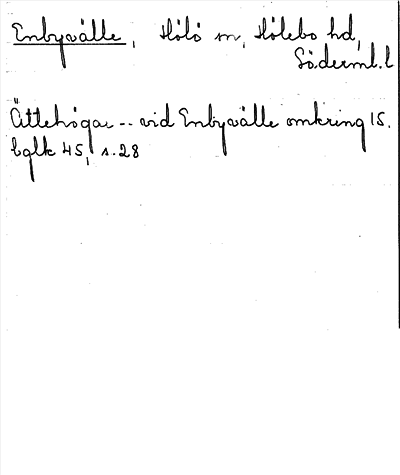 Enbyvälle, Hölö sn, Hölebo hd,
Söderml.l
Ättehögar -- vid Enbyvälle omkring 15.
Eglk 45, s.28